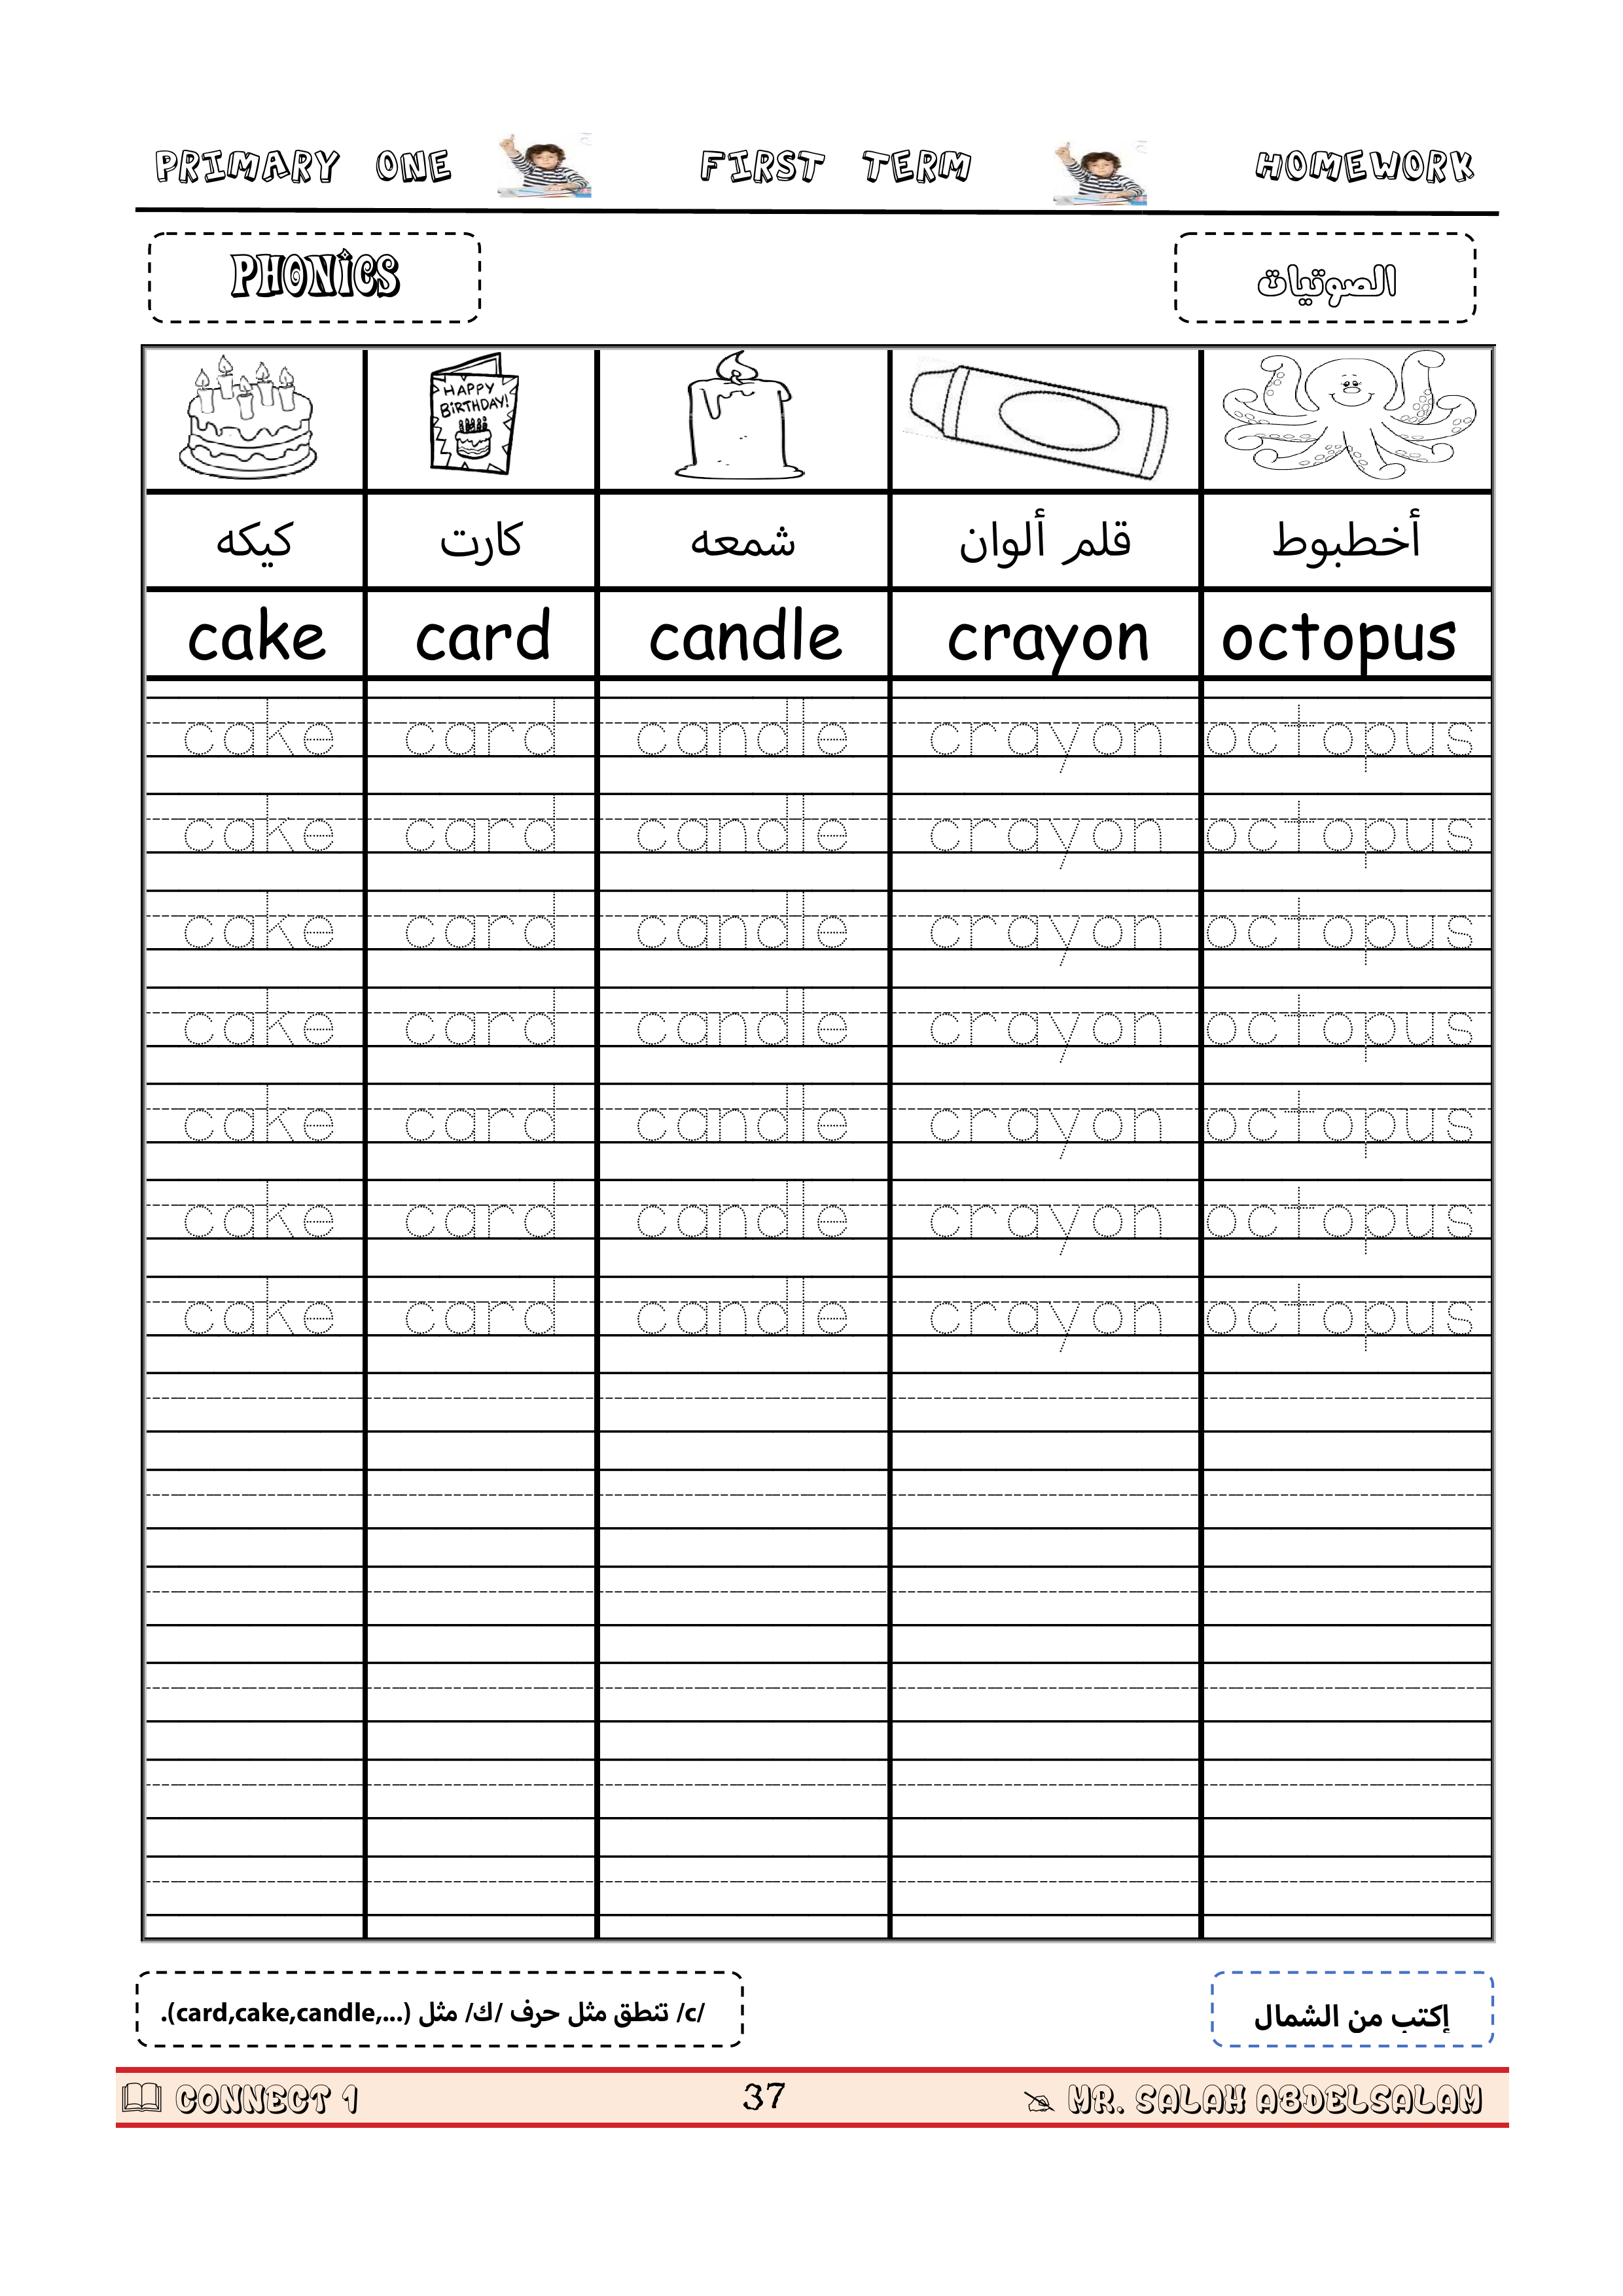 PRIMARY ONE FIRST TERM HOMEWORK
PHONICS الصوتيات
HAPPY
BIRTHDAY!
كيكه كارت شمعه قلم ألوان أخطبوط
cake card candle crayon octopus
cake card candle crayon octopus
cake card candle crayon octopus
cake card candle crayon octopus
cake card candle crayon octopus
cake card candle crayon octopus
cake card candle crayon octopus
cake card candle crayon octopus
/c/ تنطق مثل حرف /ك/ مثل (card,cake,candle,...).
إكتب من الشمال
CONNECT 1 37 MR. SALAH ABDELSALAM